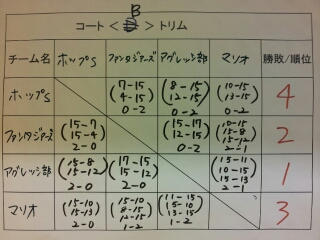 B
コート < > トリム
チーム名 ホップS ファンタジアーズ アグレッシ部 マリオ 勝敗/順位
ホップS (7-15 4-15) 0-2 (8-15 12-15) 0-2 (10-15 13-15) 0-2 4
ファンタジアーズ (15-7 15-4) 2-0 (15-17 12-15) 0-2 (10-15 15-8 15-12) 2-1 2
アグレッシ部 (15-8 15-12) 2-0 (17-15 15-12) 2-0 (15-11 10-15 15-13) 2-1 1
マリオ (15-10 15-13) 2-0 (15-10 8-15 12-15) 1-2 (11-15 15-10 13-15) 1-2 3